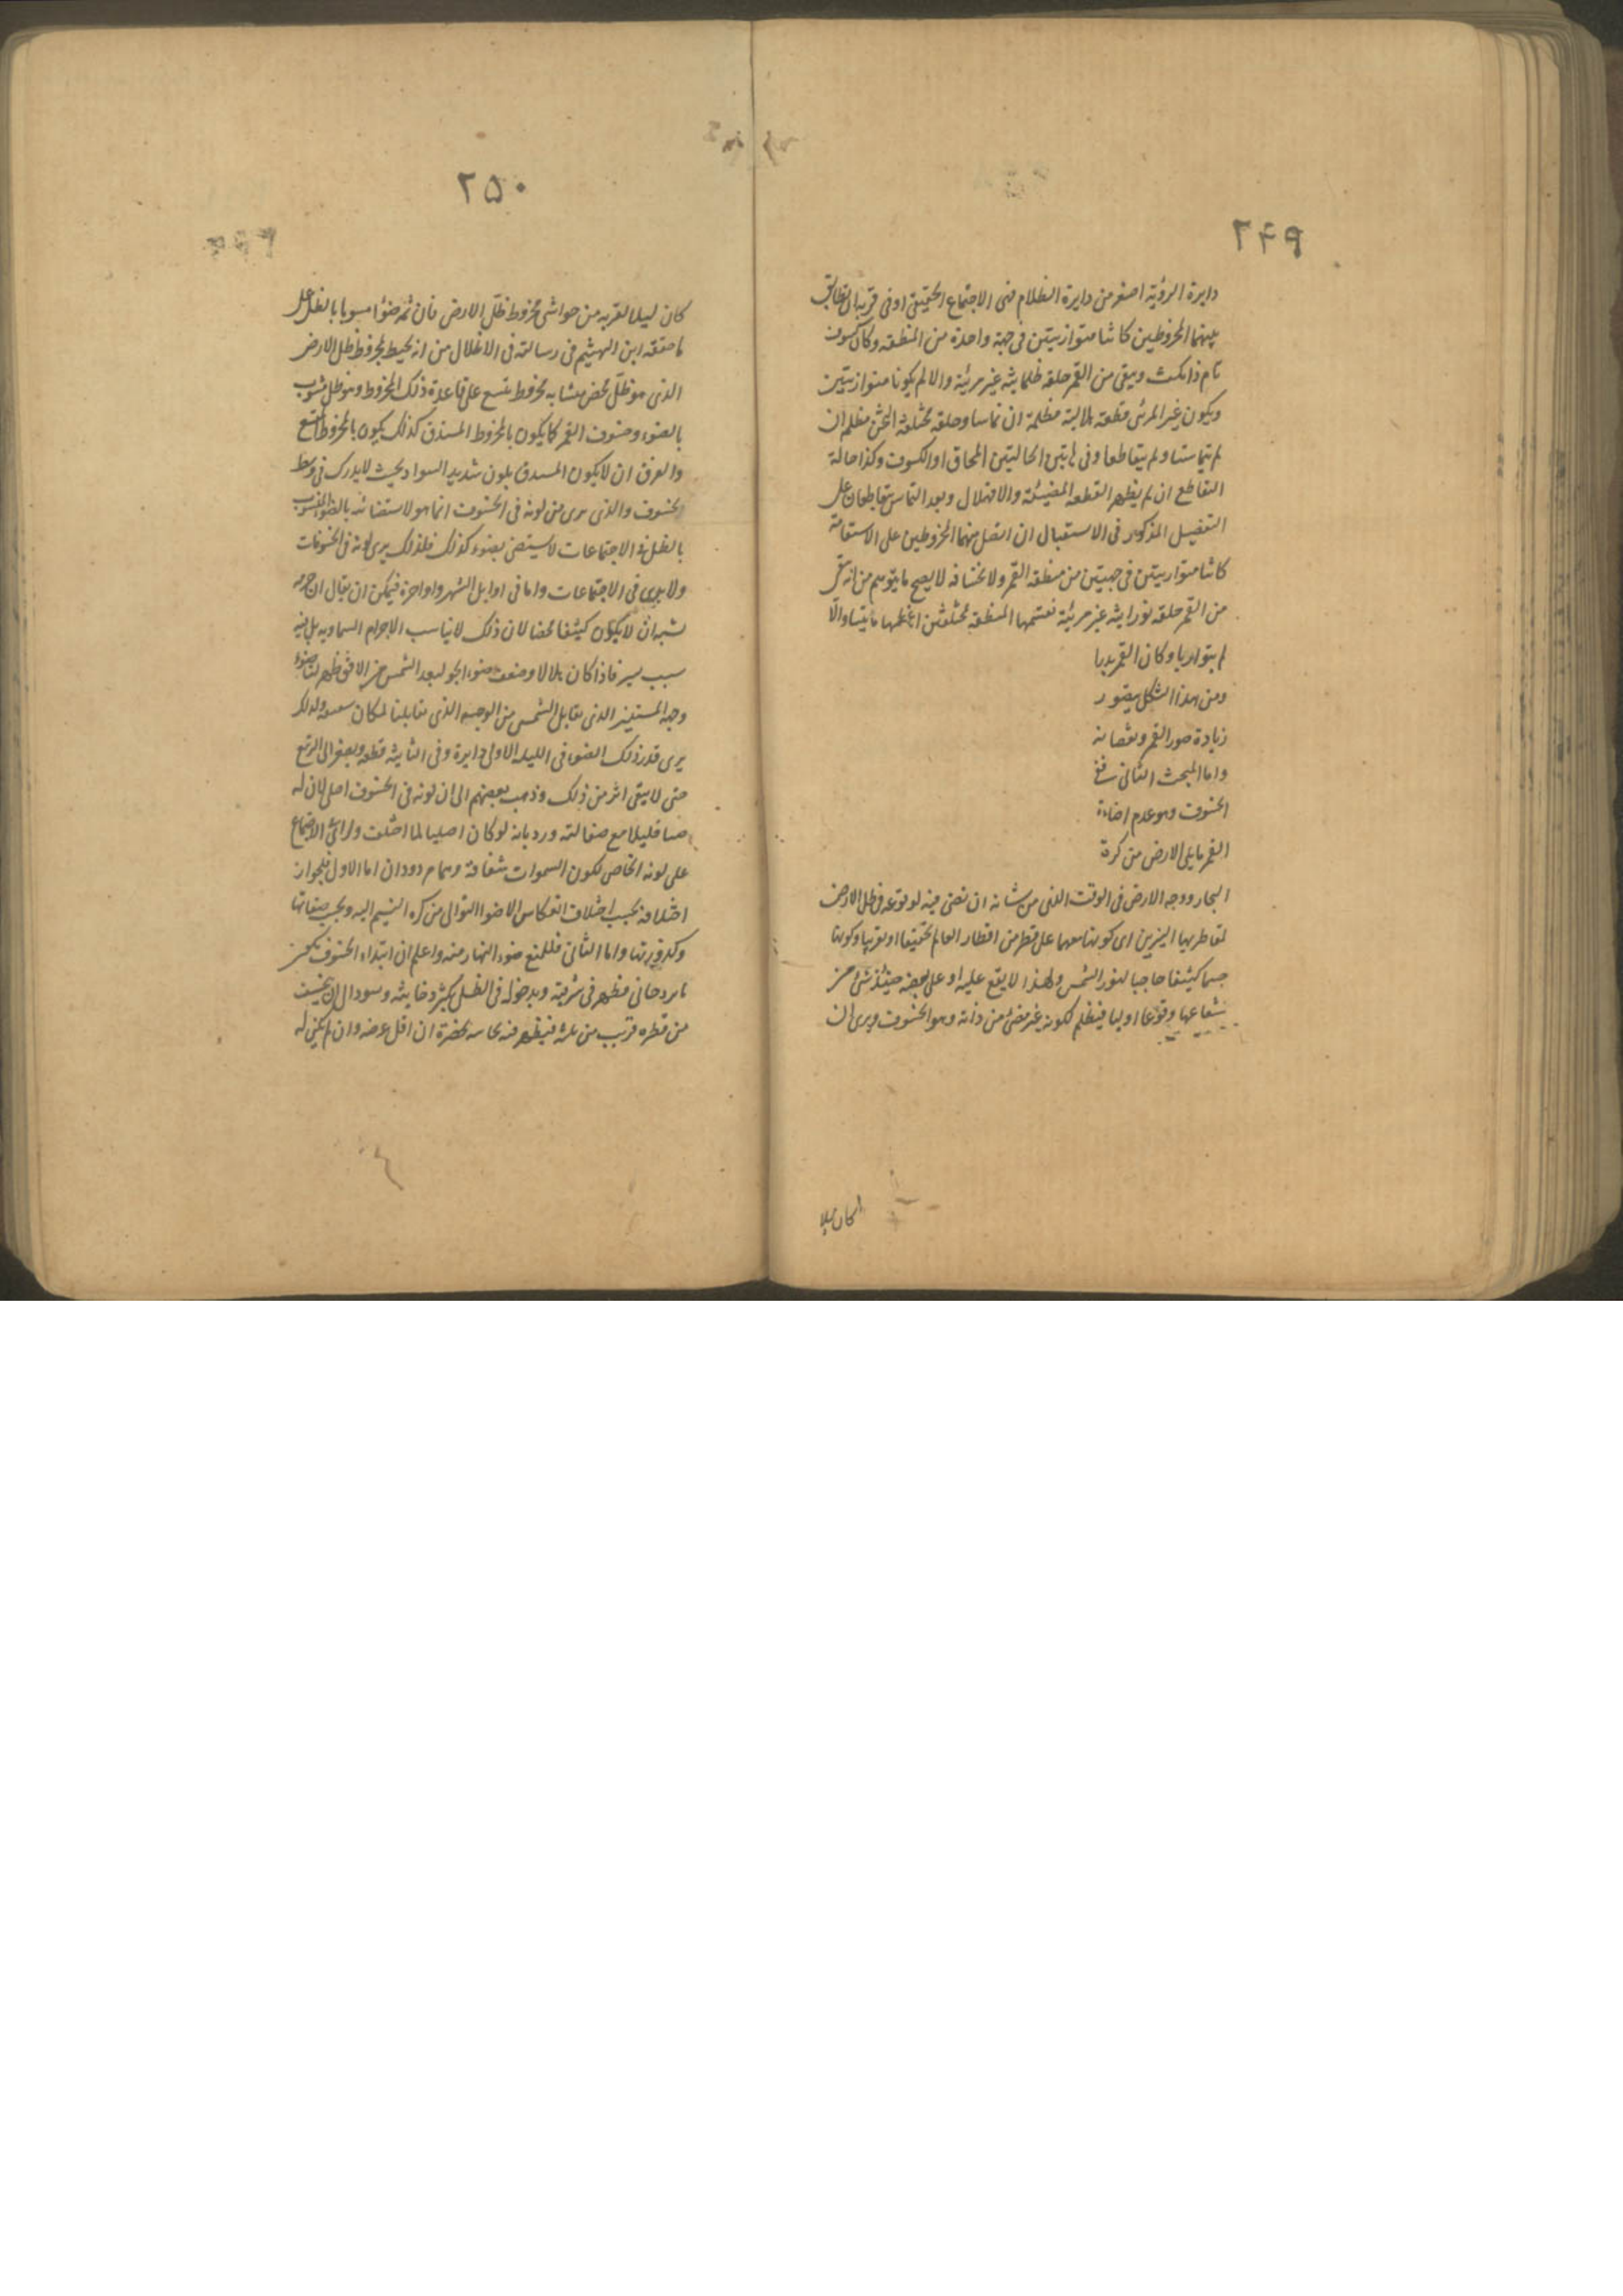 ٢٤٩
دايرة الرؤية اصغر من دايرة الظلام ففى الاجتماع الحقيقى او فى قربه ان تطابق
سهما المخروطين كانتا متوازيتين فى جهة واحدة من المنطقه وكان كسوف
تام ذا مكث ويبقى من القمر حلقه ظلمانية غير مرئية والا لم يكونا متوازيتين
ويكون غير المرئى قطعة هلالية مظلمة ان تماسا وحلقه مختلفة الثخن مظلم ان
لم تتماستا ولم يتقاطعا وفى هاتين الحاليتين المحاق او الكسوف وكذا حالة
التقاطع ان لم يظهر القطعه المضيئة والا فهلال وبعد التماس يتقاطعان على
التفصيل المذكور فى الاستقبال ان اتصل سهما المخروطين على الاستقامة
كانتا متوازيتين فى جهتين من منطقه القمر ولانخسافه لا يصح ما يتوهم من انه
من القمر حلقه نورانية غير مرئية تقسمها المنطقه بمختلفتين اعظمها والا
لم يتوازيا وكان القمر بدرا
ومن هذا الشكل يتصور
زيادة صور القمر ونقصانه
واما المبحث الثانى ففى
الخسوف وهو عدم اضاءة
القمر ما يلى الارض من كرة
البخار ووجه الارض فى الوقت الذى من شانه ان تضئ فيه لوقوعه فى ظل الارض
لتقاطرها النيرين اى كونها معهما على قطر من اقطار العالم تحقيقا او تقريبا وكونها
جسما كثيفا حاجبا لنور الشمس ولهذا لا يقع عليه او على بعضه حينئذ شئ من
شعاعها وقوعا اوليا فيظلم لكونه غير مضئ من ذاته وهو الخسوف ويرى ان
كان ليلا
٢٥٠
كان ليلا لقربه من حواشى مخروط ظل الارض فان ثمه ضوءا مشوبا بالظل على
ما حققه ابن الهيثم فى رسالته فى الاظلال من انه يحيط بمخروط ظل الارض
الذى هو ظل محض متشابه مخروط يتسع على قاعدة ذلك المخروط وهو ظل مشوب
بالضوء وخسوف القمر كما يكون بالمخروط المستدق كذلك يكون بالمخروط المتسع
والفرق ان لا يكون المستدق بلون شديد السواد بحيث لا يدرك فى وسط
الخسوف والذى يرى من لونه فى الخسوف انما هو لاستضائه بالضوء المشوب
بالظل وفى الاجتماعات لا يستضئ بضوء كذلك فلذلك يرى لونه فى الخسوفات
ولا يرى فى الاجتماعات واما فى اوايل الشهر واواخره فيمكن ان يقال ان جرمه
يشبه ان لا يكون كثيفا محضا لان ذلك لا يناسب الاجرام السماويه بل فيه
سبب يسير فاذا كان هلالا وضعف ضوء الجو لبعد الشمس من الافق ظهر لنا ضوء
وجهه المستنير الذى يقابل الشمس من الوجه الذى يقابلنا لمكان ولذلك
يرى قدر ذلك الضوء فى الليلة الاولى دايرة وفى الثانية قطعه وينقص الى التربيع
حتى لا يبقى اثر من ذلك وذهب بعضهم الى ان لونه فى الخسوف اصلى لان له
ضياء قليلا مع صقالته ورد بانه لو كان اصليا لما اختلف ولرائى الاجتماع
على لونه الخاص لكون السموات شفافة وهما مردودان اما الاول فلجواز
اختلافه بحسب اختلاف انعكاس الاضواء الثوانى من كرة النسيم اليه وبحسب صفائها
وكدورتها واما الثانى فللمنع ضوء النهار منه واعلم ان ابتداء الخسوف يكون
ما ير دخانى فيظهر فى شرقيه وبدخوله فى الظل يكثر دخانيته ويسود الى ان يخسف
من قطره قريب من ثلثه فيظهر فيه نحاسيه بخضرة ان اقل عرضه وان لم يكن له